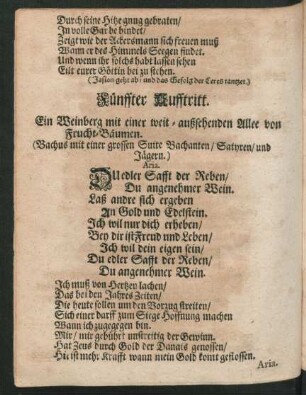 Durch seine Hitze gnug gebraten/
In volle Garbe bindet/
Zeigt wie der Ackersmann sich freuen muß
Wann er des Himmels Seegen findet.
Und wenn ihr solchs habt lassen sehen
Eilt eurer Göttin bei zu stehen.
(Jasion geht ab/ und das Gefolg der Ceres tantzet.)
Fünffter Aufftritt.
Ein Weinberg mit einer weit-außsehenden Allee von
Frucht-Bäumen.
(Bachus mit einer grossen Suite Bachanten/ Satyren/ und
Jägern.)
Aria.
DU edler Safft der Reben/
Du angenehmer Wein.
Laß andre sich ergeben
An Gold und Edelstein.
Ich wil nur dich erheben/
Bey dir ist Freud und Leben/
Ich wil dein eigen sein/
Du edler Safft der Reben/
Du angenehmer Wein.
Ich muß von Hertzen lachen/
Das bei den Jahres Zeiten/
Die heute sollen um den Vorzug streiten/
Sich einer darff zum Siege Hoffnung machen
Wann ich zugegen bin.
Mir/ mir gebührt unstreitig der Gewinn.
Hat Zeus durch Gold der Danais genossen/
Hie ist mehr Krafft wann mein Gold komt geflossen.
Aria.